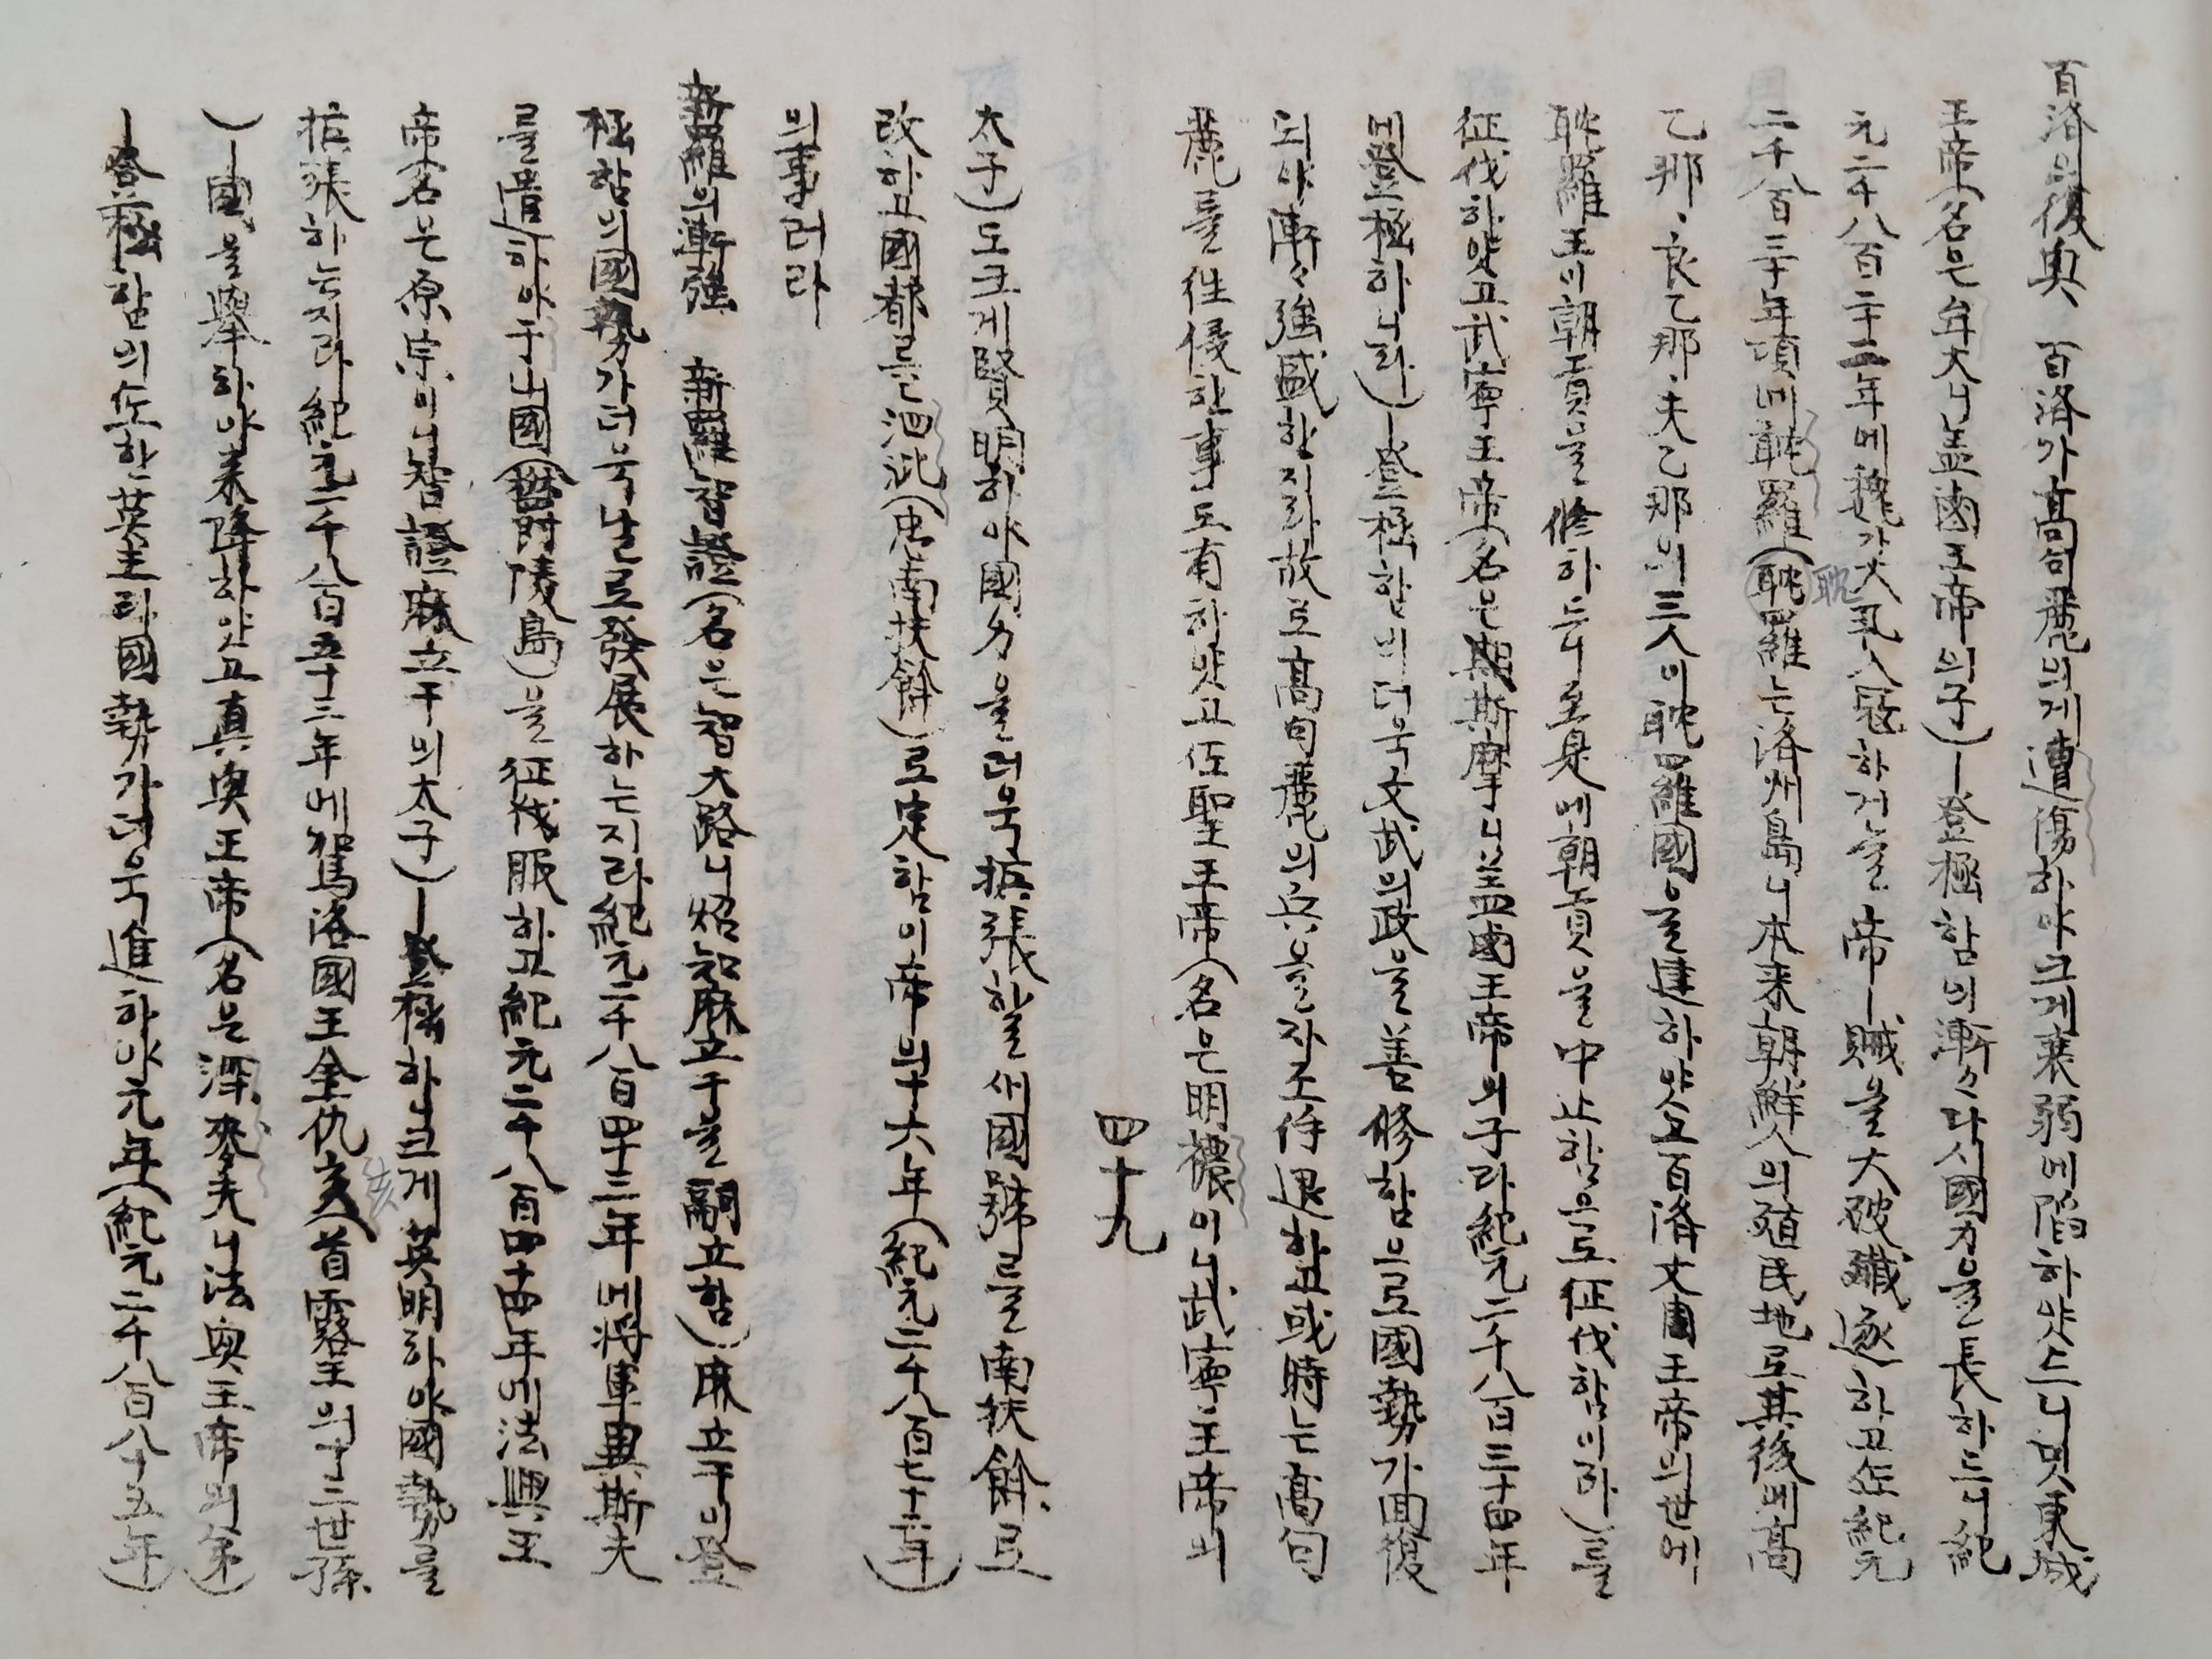 百濟의復興 百濟가高句麗의게遭傷하야크게衰弱에陷하얏드니밋東城
王帝(名은牟大니盖鹵王帝의子)ㅣ登極함의漸々다시國力을長하드니紀
元二千八百二十二年에魏가大丑入寇하거늘帝ㅣ賊을大破殲逐하고在紀元
二千八百三十年頃에耽羅(耽羅는濟州島니本來朝鮮人의殖民地로其後에高
乙那·良乙那·夫乙那의三人이耽羅國을建하얏고百濟文周王帝의世에
耽羅王이朝貢을修하드니至是에朝貢을中止함으로征伐함이라)를
征伐하얏고武寧王帝(名은斯摩니盖鹵王帝의子라紀元二千八百三十四年
에登極하니라)ㅣ登極함에더욱文武의政을善修함으로國勢가回復
되야漸々強盛한지라故로高句麗의兵을자조侔退하고或時는高句
麗를往侵한事도有하얏고在聖王帝(名은明穠이니武寧王帝의
四十九
太子)도크게賢明하야國力을더욱拡張할새國號를南扶餘로
改하고國都를泗沘(忠南扶餘)로定함이帝의十六年(紀元二千八百七十一年)
의事러라
新羅의漸強 新羅智證(名은智大路니炤知麻立干을嗣立함)麻立干이登
極함의國勢가더욱날로發展하는지라紀元二千八百四十三年에將軍異斯夫
를遣하야于山國(欝陵島)을征伐服하고紀元二千八百四十四年에法興王
帝名은原宗이니智證麻立干의太子)ㅣ登極하니크게英明하야國勢를
拡張하는지라紀元二千八百五十三年에駕洛國王金仇亥(首露王의十二世孫
)ㅣ國을擧하야来降하얏고真興王帝(名은深麥夫니法興王帝의弟)
ㅣ登極함의亦한英主라國勢가더욱進하야元年(紀元二千八百八十五年)